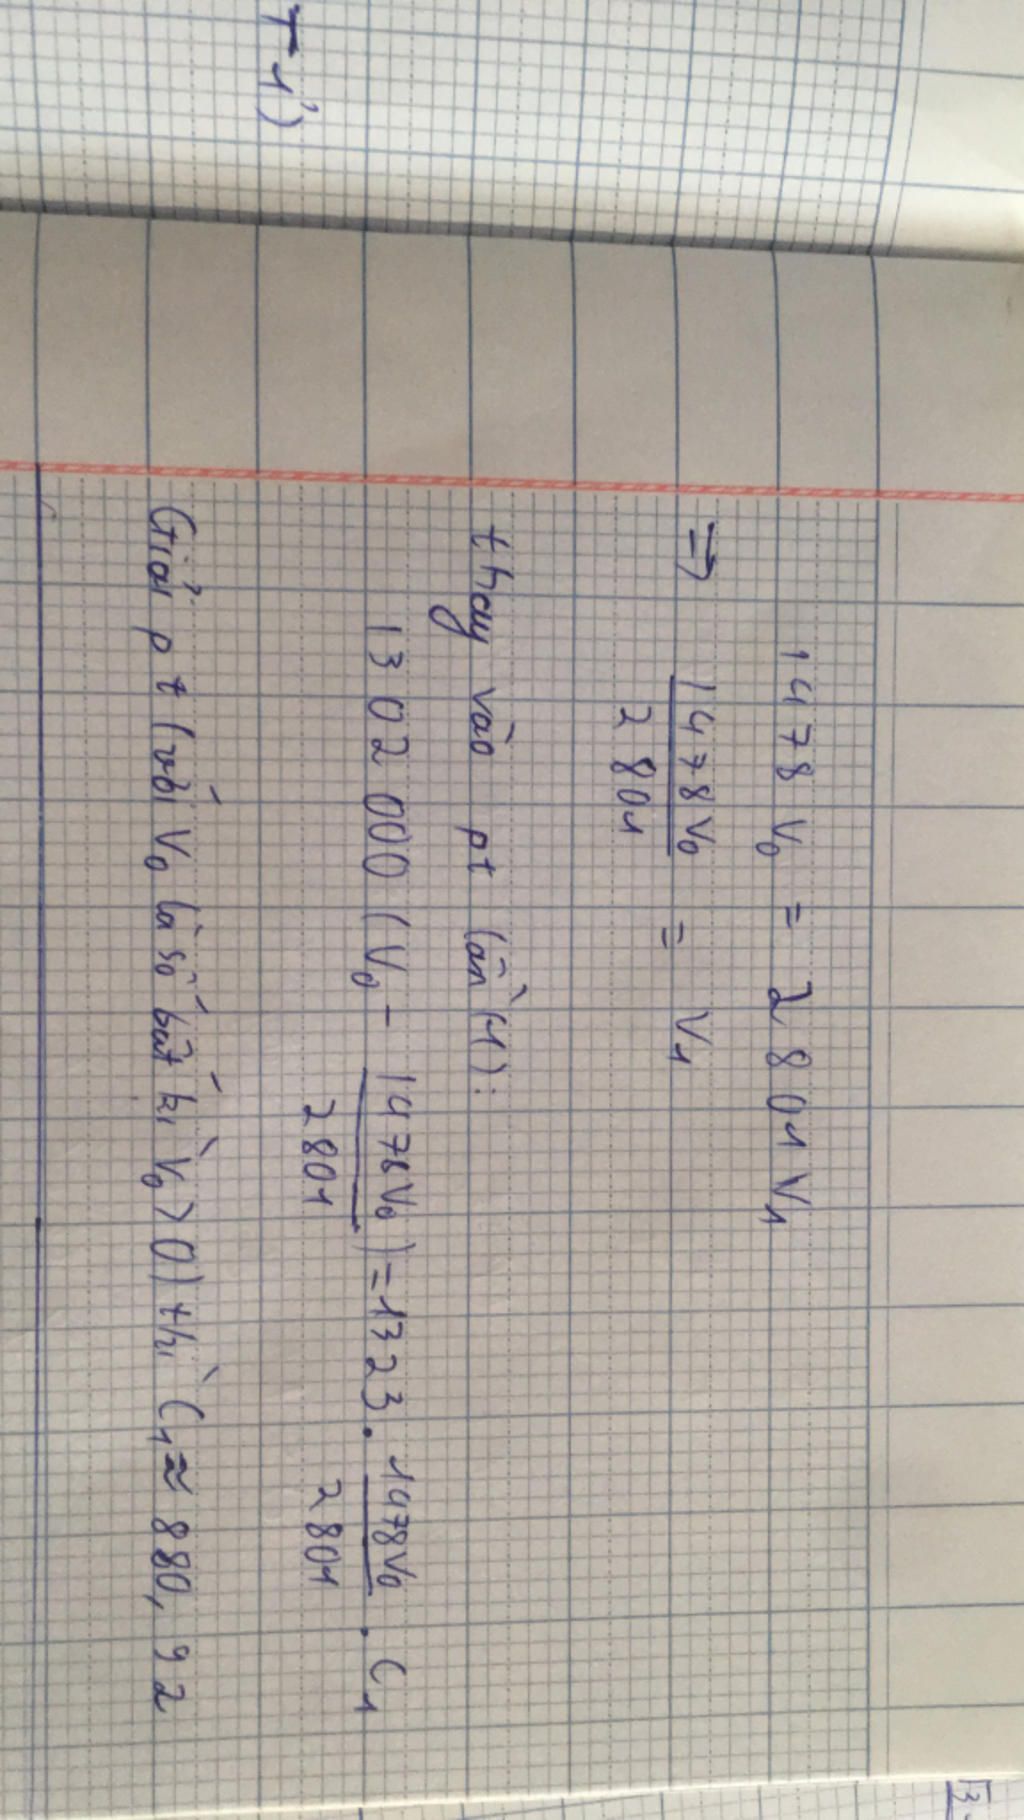 T-1')
1478 V₀ = 2801 V₁
⇒ 1478V₀ / 2801 = V₁
thay vào pt lần (1):
1302 000 (V₀ - 1478V₀ / 2801) = 1323 . 1478V₀ / 2801 . C₁
Giải pt (với V₀ là số bất kì V₀ > 0) thì C₁ ≈ 880,92